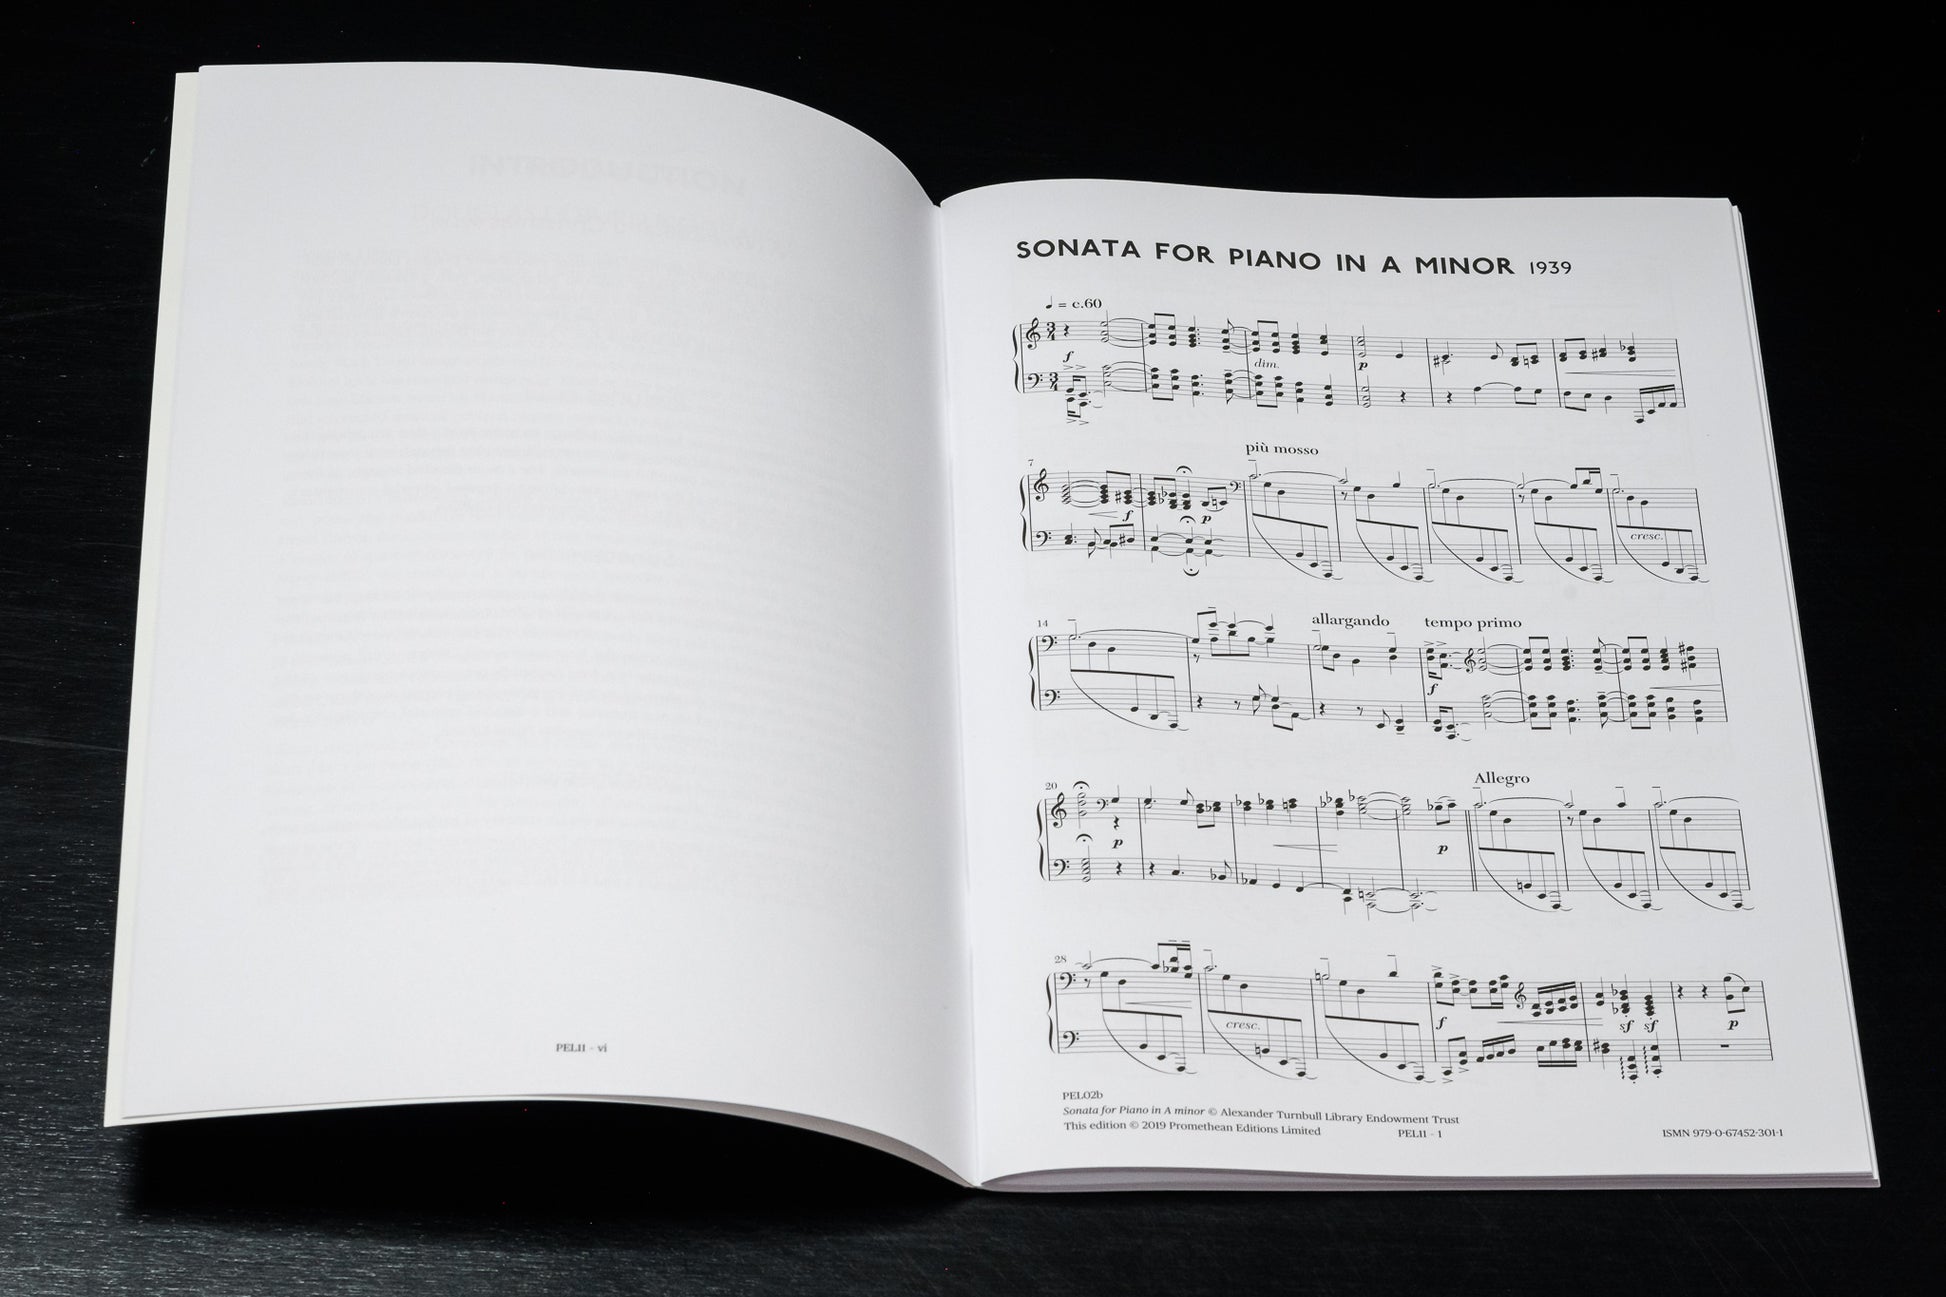 SONATA FOR PIANO IN A MINOR 1939
♩ = c.60
3 4
f
dim.
p
3 4
7
più mosso
f
p
cresc.
14
allargando
tempo primo
f
20
Allegro
p
p
28
cresc.
f
sf sf
p
PELII - vi
PEL02b
Sonata for Piano in A minor © Alexander Turnbull Library Endowment Trust
This edition © 2019 Promethean Editions Limited
PELII - 1
ISMN 979-0-67452-301-1